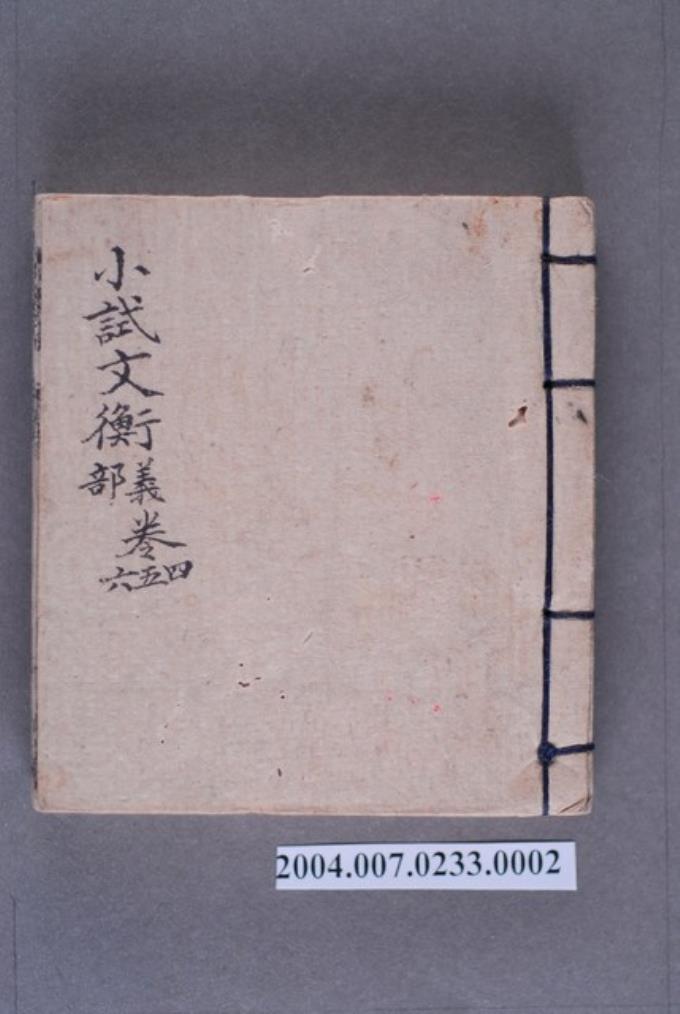 小試文衡
義部
卷
四五六
2004.007.0233.0002